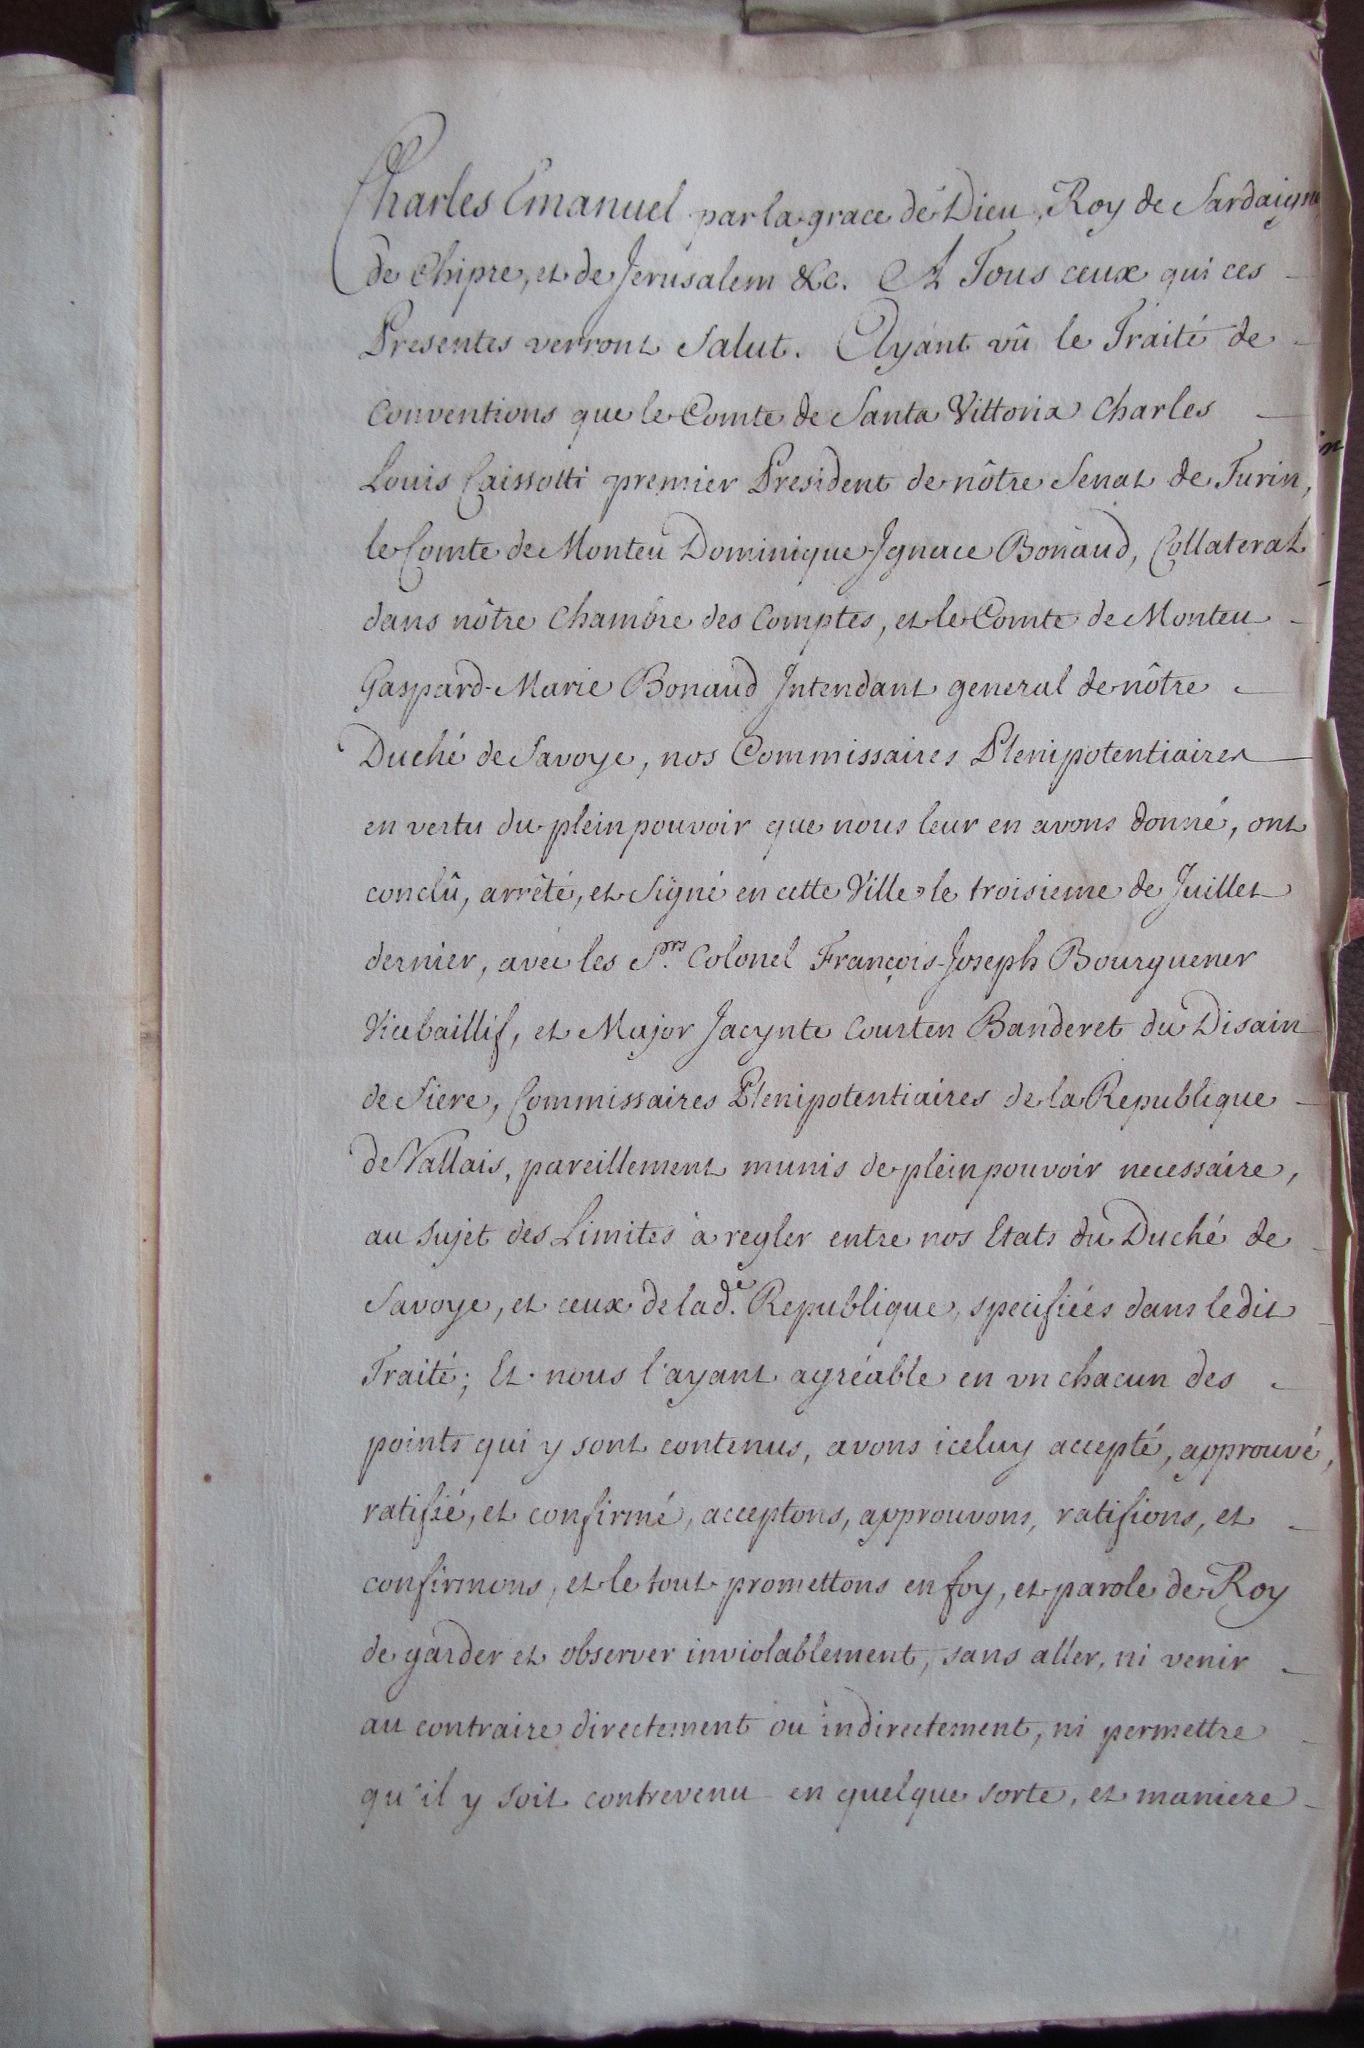 Charles Emanuel par la grace de Dieu, Roy de Sardaigne
de Chipre, et de Jerusalem &c. A Tous ceux qui ces
Presentes verront Salut. Ayant vû le Traité de
Conventions que le Comte de Santa Vittoria Charles
Louis Caissotti premier President de nôtre Senat de Turin,
le Comte de Monteu Dominique-Ignace Bonaud, Collateral
dans nôtre Chambre des Comptes, et le Comte de Monteu
Gaspard-Marie Bonaud Intendant general de nôtre
Duché de Savoye, nos Commissaires Plenipotentiaires
en vertu du plein pouvoir que nous leur en avons donné, ont
conclû, arrêté, et Signé en cette Ville le troisieme de Juillet
dernier, avec les S.rs Colonel François-Joseph Bourguener
Vicebaillif, et Major Jacynte Courten Banderet du Disain
de Siere, Commissaires Plenipotentiaires de la Republique
de Vallais, pareillement munis de plein pouvoir necessaire,
au sujet des Limites à regler entre nos Etats du Duché de
Savoye, et ceux de lad.e Republique, specifiées dans ledit
Traité; Et nous l'ayant agréable en vn chacun des
points qui y sont contenus, avons iceluy accepté, approuvé,
ratifié, et confirmé, acceptons, approuvons, ratifions, et
confirmons, et le tout promettons en foy, et parole de Roy
de garder et observer inviolablement, sans aller, ni venir
au contraire directement ou indirectement, ni permettre
qu'il y soit contrevenu en quelque sorte, et maniere